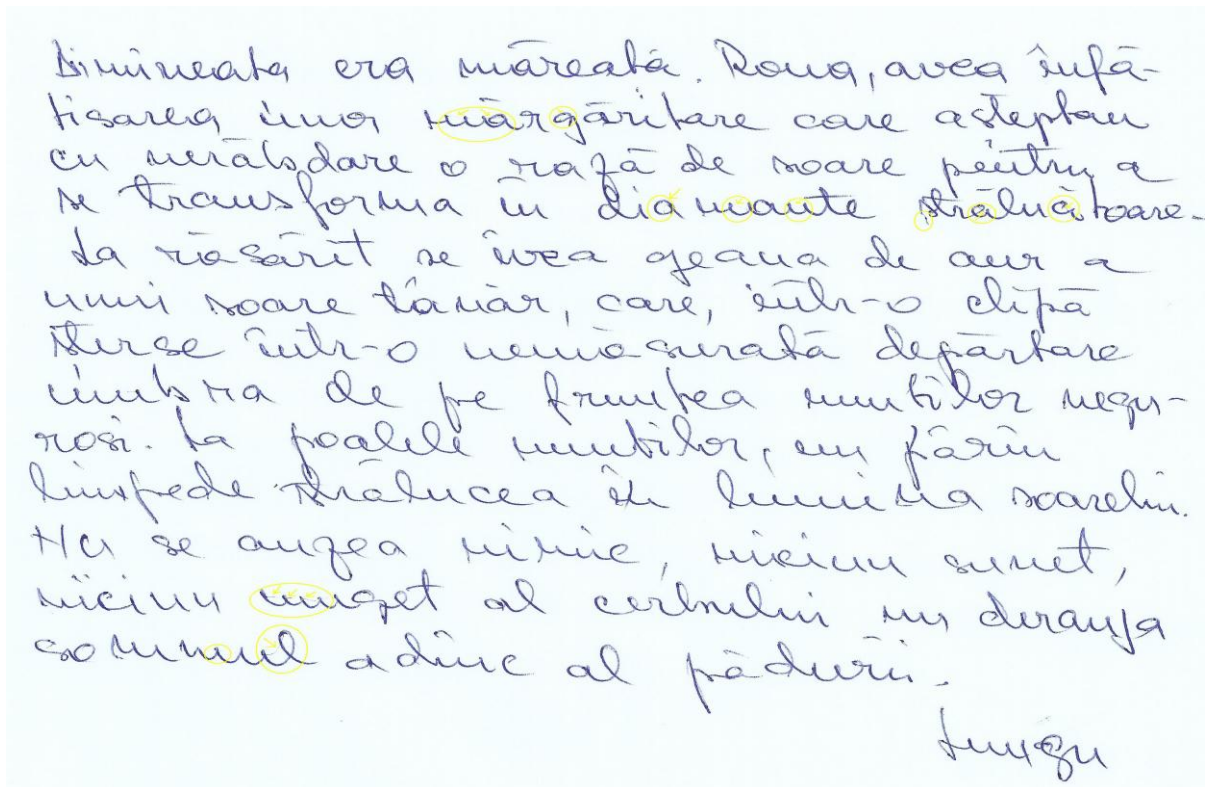 Dimineata era măreată. Roua, avea înfă-
tisarea unor mărgăritare care așteptau
cu nerăbdare o rază de soare pentru a
se transforma în diamante strălucitoare.
La răsărit se ivea geana de aur a
unui soare tânăr, care, într-o clipă
sterse într-o nemăsurată depărtare
umbra de pe fruntea muntilor negu-
rosi. La poalele muntilor, un pârîu
limpede strălucea în lumina soarelui.
Nu se auzea nimic, niciun sunet,
niciun muget al cerbului nu deranja
somnul adînc al pădurii.